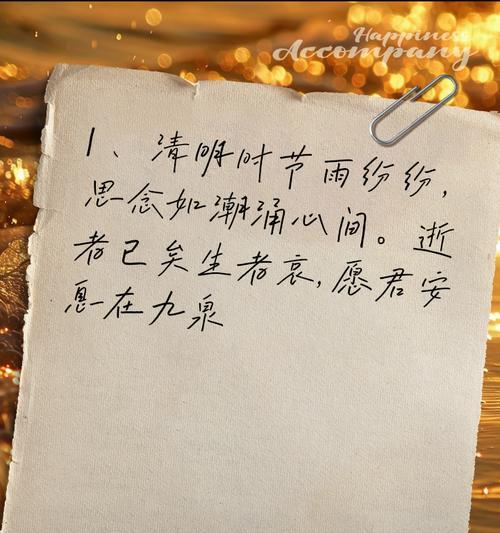 Happiness
Accompany
1、清明时节雨纷纷，
思念如潮涌心间。逝
者已矣生者哀，愿君安
息在九泉